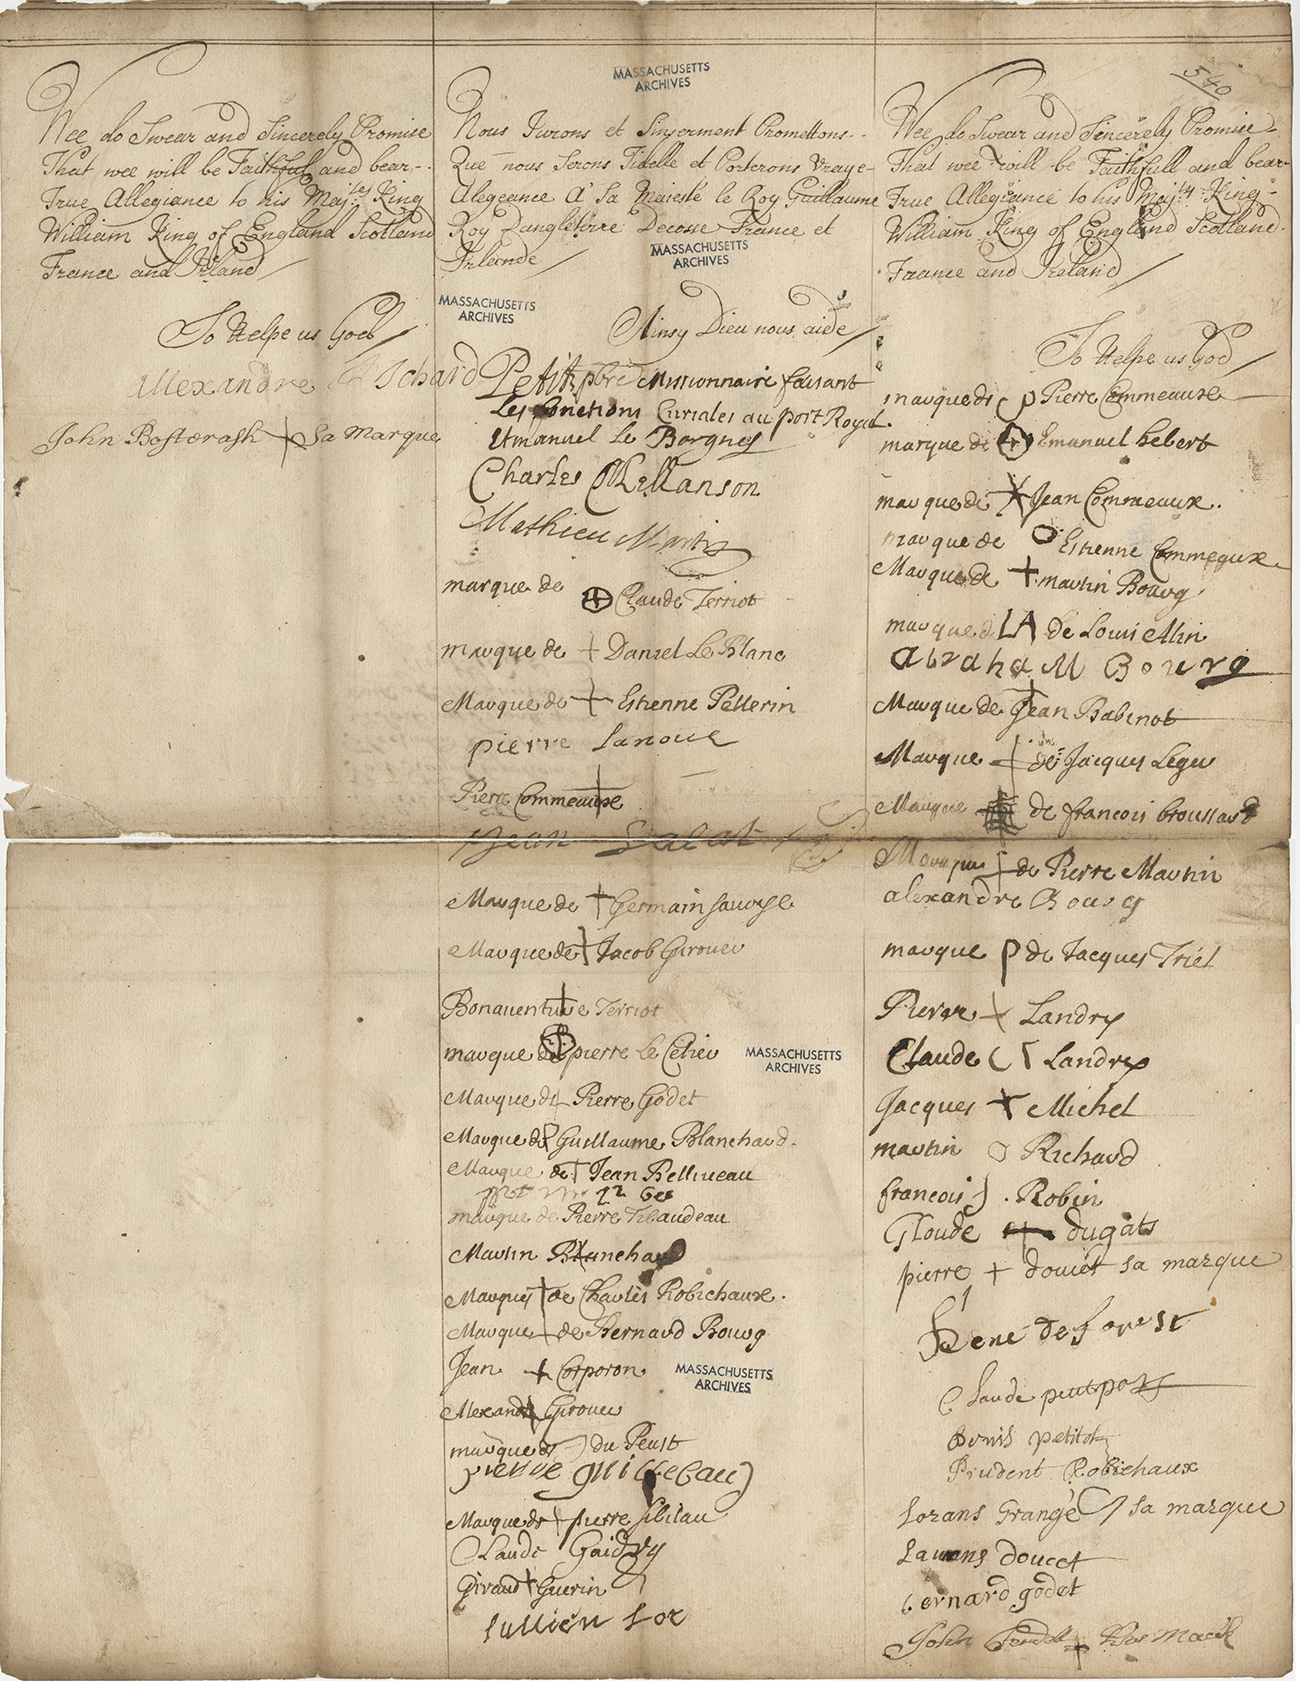 Wee do Swear and Sincerely Promise
That wee will be Faithfull and bear
True Allegiance to his Maj.ties King
William King of England Scotland
France and Irland
So Helpe us God
Alexandre Richard
John Bostorash + Sa Marque
MASSACHUSETTS
ARCHIVES
Nous Jurons et Sinserment Promettons
Que nous Serons Fidelle et Porterons Vraye
Alegeance A Sa Majesté le Roy Guillaume
Roy Dangleterre Decosse France et
Irlande
MASSACHUSETTS
ARCHIVES
MASSACHUSETTS
ARCHIVES
Ainsy Dieu nous aide
Petit pbre Missionnaire faisant
Les fonctions Curiales au port Royal.
Emanuel Le Borgne
Charles Mellanson
Mathieu Martin
marque de Claude Terriot
marque de + Daniel Le Blanc
Marque de + Estienne Pellerin
pierre Lanoue
Pierre Commeaux
Jean
Marque de + Germain Savoye
Marque de Jacob Girouer
Bonaventure Terriot
marque de pierre Le
MASSACHUSETTS
ARCHIVES
Marque de Pierre Godet
Marque de Guillaume Blanchard
Marque de + Jean Belliveau
marque de Pierre Tibaudeau
Martin Blanchard
Marques + de Charles Robichaux.
Marque + de Bernard Bourg
Jean + Corporon
MASSACHUSETTS
ARCHIVES
Alexandre Girouer
marque de du Peust
pierre guillebau
Marque de + pierre Sibilau
Claude Gaidry
Giraud + Guerin
Jullien Lor
540
Wee do Swear and Sincerely Promise
That wee will be Faithfull and bear
True Allegiance to his Maj.tys King
William King of England Scotland.
France and Ireland
So Helpe us God
marque de Pierre Commeaux
marque de Emanuel hebert
marque de X Jean Commeaux.
marque de O Estienne Commeaux
Marque de + martin Bourg
marque de LA de Louis Alin
abraham Bourg
Marque de Jean Babinot
Marque + de Jacques Leger
Marque de francois broussard
Marque de Pierre Martin
alexandre Bourg
marque P de Jacques Triel
Pierre + Landry
Claude C Γ Landry
Jacques + Michel
martin O Richard
francois ) Robin
Cloude + dugats
pierre + doucet sa marque
Rene de forest
Claude petitpas
Denis petitot
Prudent Robichaux
Lorans Grange sa marque
Laurans doucet
bernard godet
John + his Mark